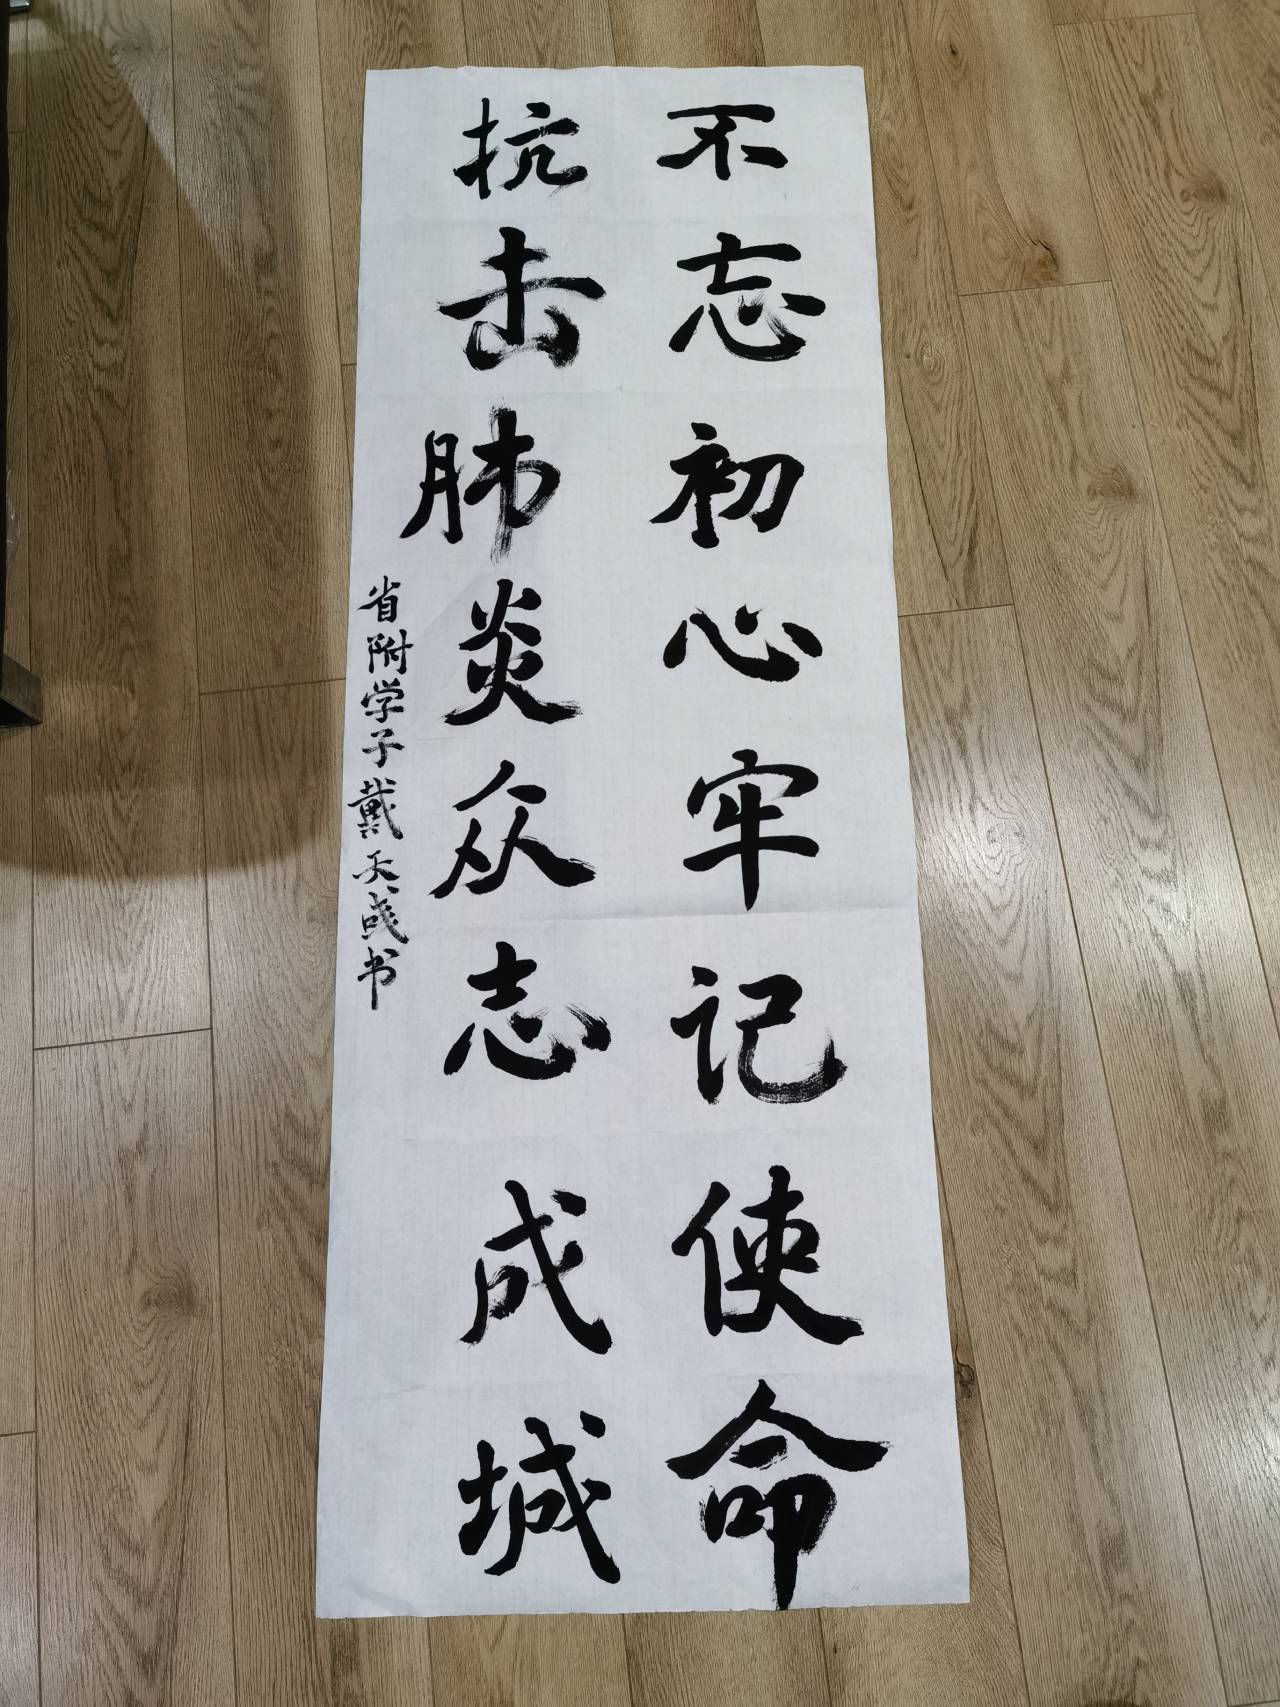 不忘初心牢记使命
抗击肺炎众志成城
省附学子戴天成书